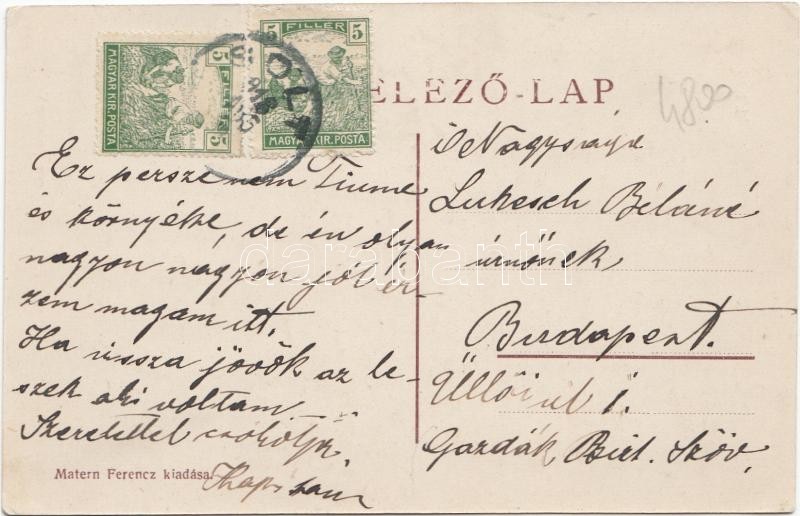 FILLÉR
5
5
MAGYAR KIR. POSTA
5
FILLÉR
5
MAGYAR KIR. POSTA
ELEZŐ-LAP
4800
Ez persze nem Fiume
és környéke, de én olyan
nagyon nagyon jól ér-
zem magam itt.
Ha vissza jövök az le-
szek aki voltam
Szeretettel csókolja
Matern Ferencz kiadása.
Ő Nagysága
Lukesch Béláné
úrnőnek
Budapest.
Üllői ut 1.
Gazdák Bizt. Szöv.
darabanth